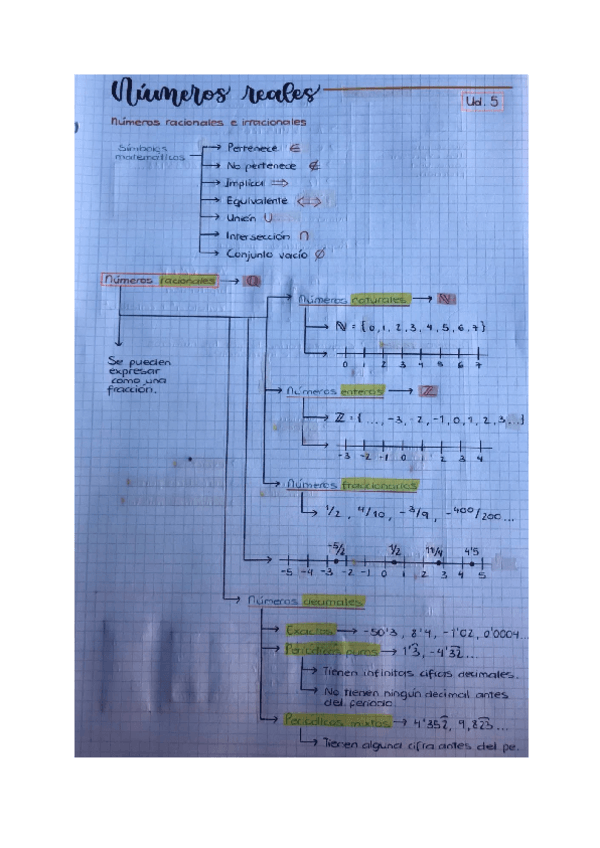 Números reales
Ud. 5
Números racionales e irracionales
Símbolos matemáticos
Pertenece ∈
No pertenece ∉
Implica ⟹
Equivalente ⟺
Unión ∪
Intersección ∩
Conjunto vacío ∅
Números racionales → ℚ
Se pueden
expresar
como una
fracción.
Números naturales → ℕ
ℕ = {0, 1, 2, 3, 4, 5, 6, 7}
0 1 2 3 4 5 6 7
Números enteros → ℤ
ℤ = {..., -3, -2, -1, 0, 1, 2, 3...}
-3 -2 -1 0 1 2 3 4
Números fraccionarios
1/2, 4/10, -3/9, -400/200...
-5/2 1/2 11/4 4'5
-5 -4 -3 -2 -1 0 1 2 3 4 5
Números decimales
Exactos → -50'3, 8'4, -1'02, 0'0004...
Periódicos puros → 1'3̂, -4'3͡2...
Tienen infinitas cifras decimales.
No tienen ningún decimal antes
del periodo.
Periódicos mixtos → 4'352̂, 9,82͡3...
Tienen alguna cifra antes del pe.